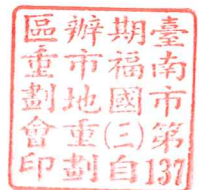 臺南市第137
期福國(三)自
辦市地重劃
區重劃會印